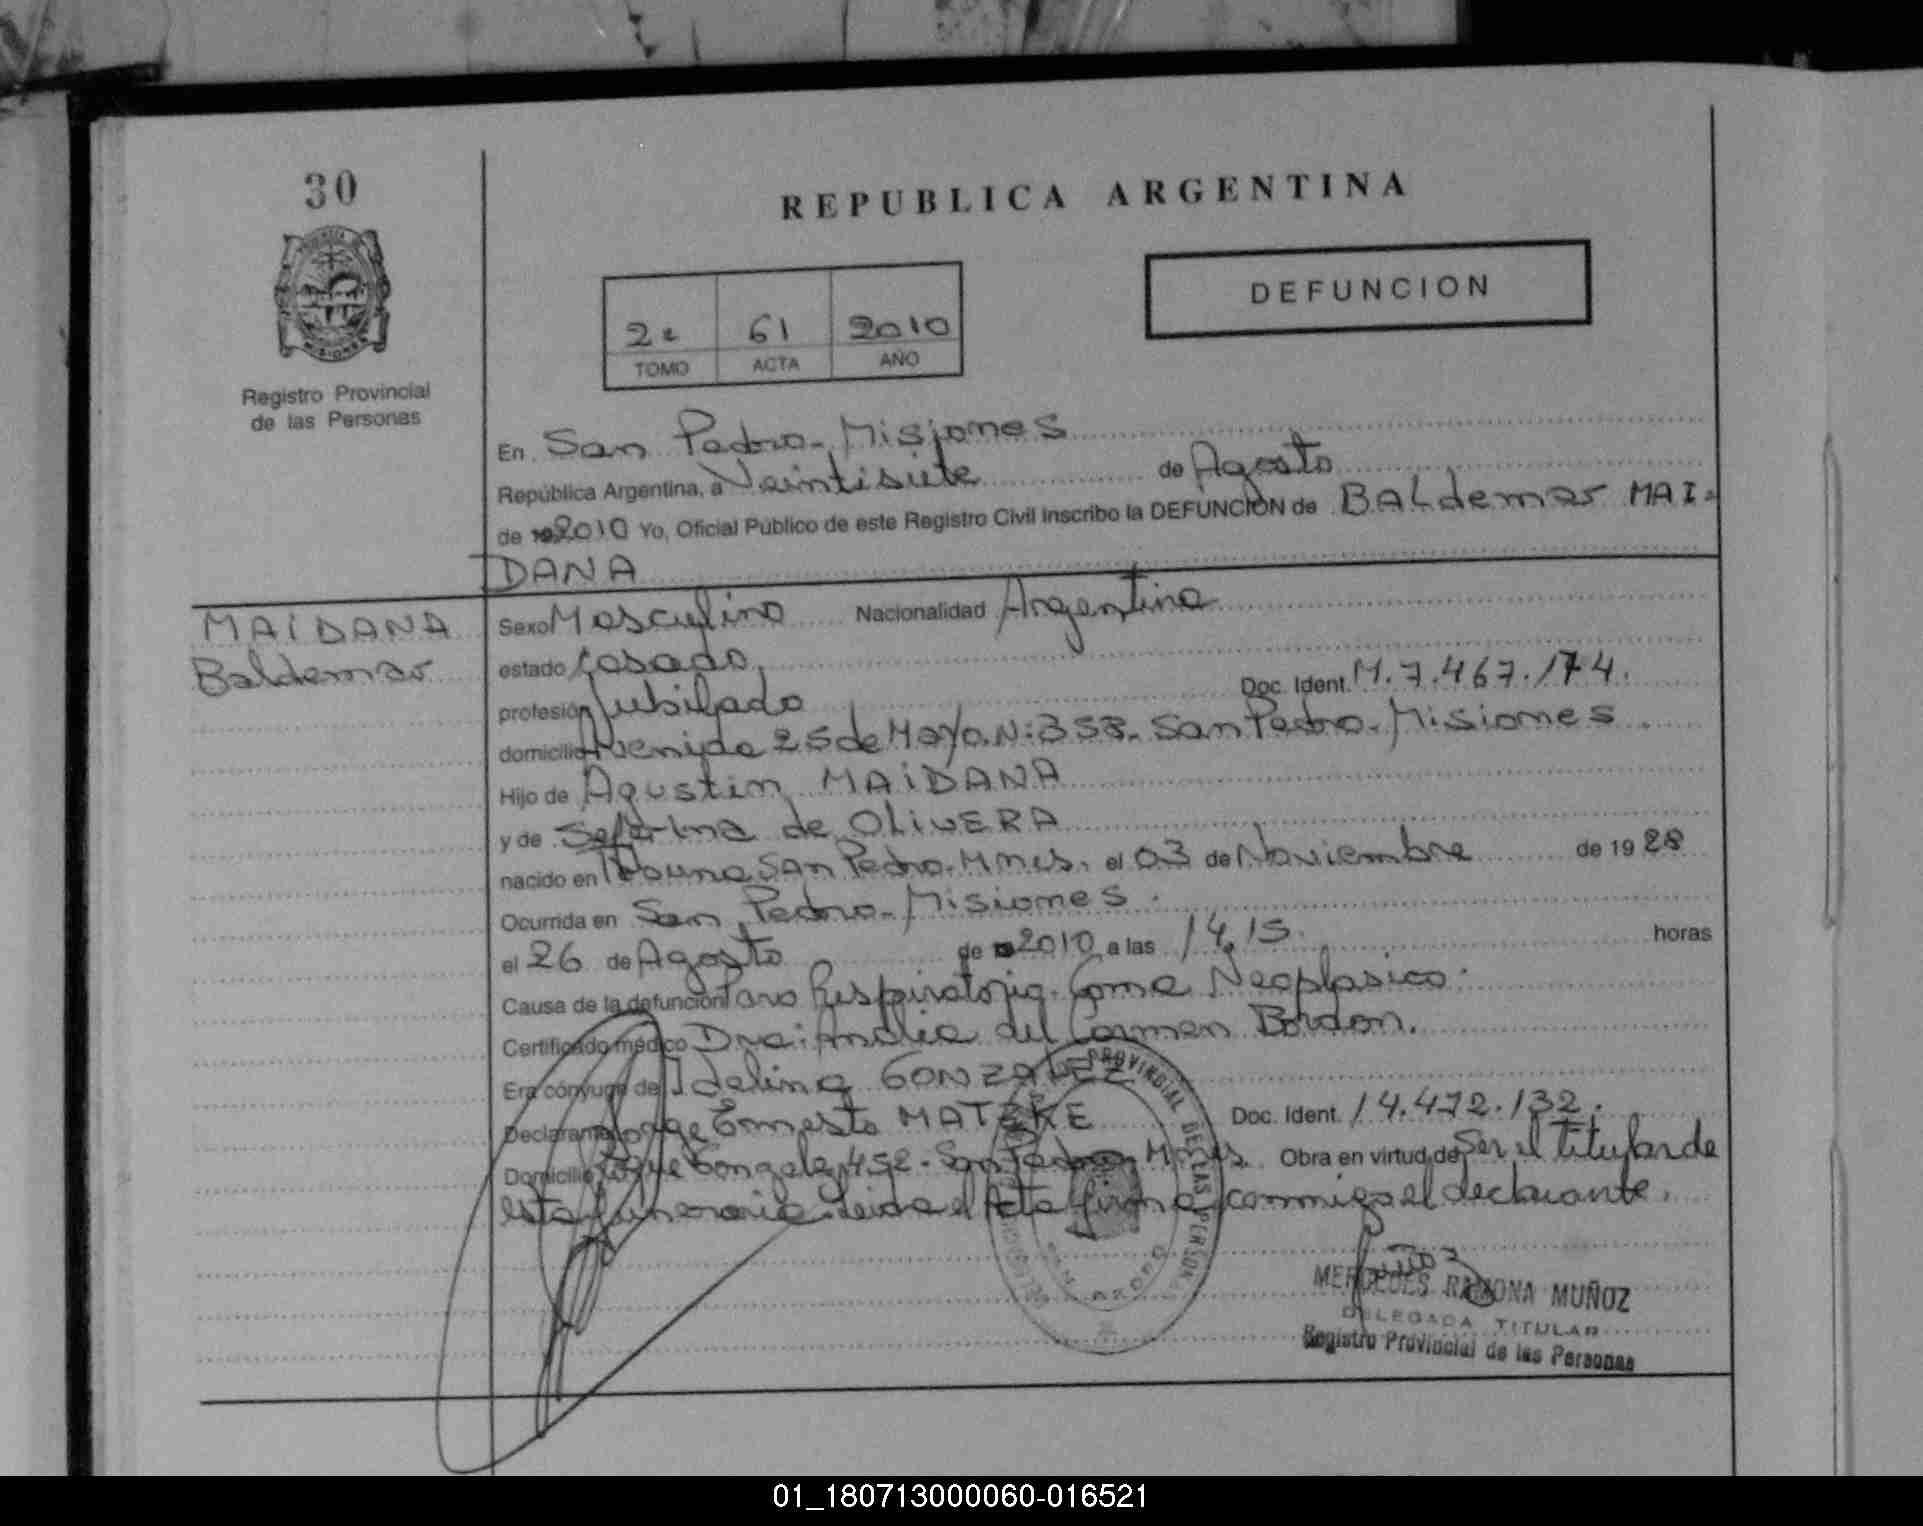 30
REPUBLICA ARGENTINA
DEFUNCION
2º 61 2010
TOMO ACTA AÑO
MISIONES
Registro Provincial
de las Personas
En San Pedro - Misiones
República Argentina, a Veintisiete de Agosto
de 2010 Yo, Oficial Público de este Registro Civil inscribo la DEFUNCION de BALdemar MAI=
DANA
MAIDANA
Baldemar
Sexo Masculino Nacionalidad Argentina
estado Casado
profesión Jubilado Doc. Ident. M. 7.467.174.
domicilio Avenida 25 de Mayo. N: 358. San Pedro - Misiones
Hijo de Agustin MAIDANA
y de Seferina de OLIVERA
nacido en San Pedro. Mnes. el 03 de Noviembre de 1928
Ocurrida en San Pedro - Misiones.
el 26 de Agosto de 2010 a las 14,15. horas
Causa de la defunción Paro Respiratorio. Coma Neoplasico.
Certificado médico Dra: Analia del Carmen Bordon.
Era cónyuge de Idelina GONZALEZ
Declarante Jorge Ernesto MATZKE Doc. Ident. 14.472.132.
Domicilio Roque Gonzalez 452 - San Pedro - Mnes. Obra en virtud de Ser el titular de
esta funeraria. Leida el Acta firma conmigo el declarante.
PROVINCIAL DE LAS PERSON
SAN PEDRO
MERCEDES RAMONA MUÑOZ
DELEGADA TITULAR
Registro Provincial de las Personas
01_180713000060-016521